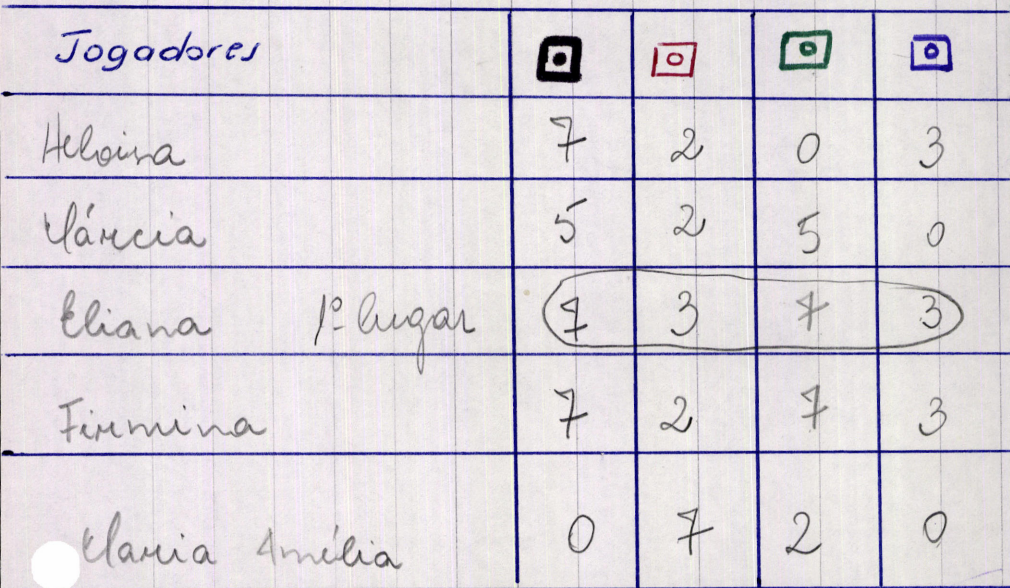 Jogadores
Heloisa 7 2 0 3
Márcia 5 2 5 0
Eliana 1º lugar 7 3 7 3
Firmina 7 2 7 3
Maria Amélia 0 7 2 0